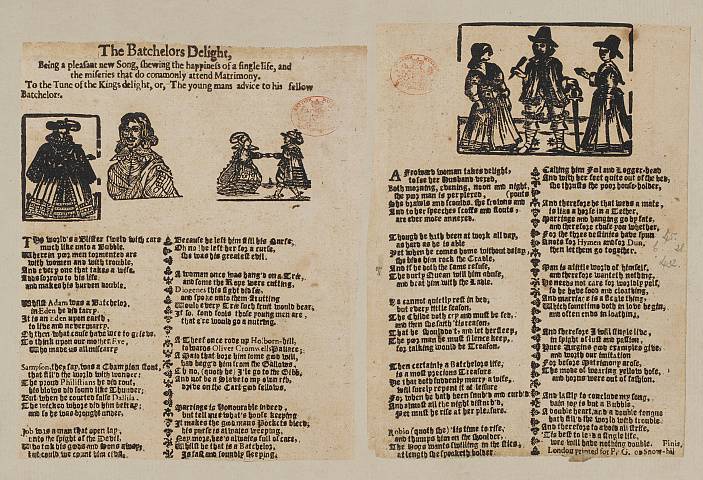 The Batchelors Delight,
Being a pleasant new Song, shewing the happiness of a single life, and
the miseries that do commonly attend Matrimony.
To the Tune of the Kings delight, or, The young mans advice to his fellow
Batchelors.
THis world's a Blister sweld with care
much like unto a Bubble,
Wherein poor men tormented are
with women and with trouble,
And every one that takes a wife,
Adds sorrow to his life,
and makes his burden double.
Whilst Adam was a Batchelor,
in Eden he did tarry,
It is an Eden upon earth,
to live and never marry,
Oh then what cause have we to grieve,
To think upon our mother Eve,
Who made us all miscarry
Sampson, they say, was a Champian stout,
that fill'd the world with wonder:
The proud Philistians he did rout,
his blows did sound like Thunder;
But when he courted false Dallila,
The wicked whore did him betray,
and so he was brought under.
Job was a man that open lay,
unto the spight of the Devil,
Who took his goods and Sons away,
but could we count him civil,
Because he left him still his Curse,
Oh no! he left her for a curse,
she was his greatest evil.
A woman once was hang'd on a Tree,
and some the Rope were cutting,
Diogenes this sight did see
and spoke unto them strutting
Would every Tree such fruit would bear,
If so, fond fools those young men are,
that e're would go a nutting.
A Theef once rode up Holborn-hill,
towards Oliver Cromwells Pallace;
A Maid that bore him some good will,
had begg'd him from the Gallows,
Oh no, (quoth he) I'le go to the Gibb,
And not be a Slave to my own rib,
drive on the Cart good fellows.
Marriage is Honourable indeed,
but tell me what's house keeping
It makes the good mans Pockets bleed,
his purse is always weeping,
Nay more, hee's always full of care,
Whilst he that is a Batchelor,
Is fast and soundly sleeping,
A Froward woman takes delight,
to see her Husband vexed,
Both morning, evening, noon and night,
the poor man is perplexed, (pouts
She brawls and scoulds, she frowns and
And to her speeches scoffs and flouts
are ever more annexed.
Though he hath been at work all day,
as hard as he is able
Yet when he comes home without delay,
she bids him rock the Cradle,
And if he doth the same refuse,
The durty Quean will him abuse,
and beat him with the Ladle.
He cannot quietly rest in bed,
but every little season,
The Childe doth cry and must be fed,
and then she saith 'tis reason,
That he should up and let her sleep,
The poor man he must silence keep,
for talking would be Treason.
Then certainly a Batchelors life,
is a most precious Treasure
He that doth suddenly marry a wife,
will surely repent it at leasure
For when he hath been snub'd and curb'd
And almost all the night disturb'd,
Yet must he rise at her pleasure.
Robin (quoth she) 'tis time to rise,
and thumps him on the shoulder,
The Boars want swilling in the sties,
at length she speaketh bolder
Calling him Fool and Logger-head
And with her feet quite out of the bed,
she thrusts the poor house-holder,
And therefore he that weds a mate,
is like a horse in a Tether,
Marriage and hanging go by fate,
and therefore chuse you whether,
for the three destinies have spun
Knots for Hymen and for Dun,
then let them go together.
Man is a little world of himself,
and therefore wanteth nothing,
He needs not care for worldly pelf,
so he have food and cloathing,
And marriage is a Bestle thing,
Which sometimes doth in love begin,
and often ends in loathing.
And therefore I will single live,
in spight of lust and passion,
Pure Virgins good examples give,
and worth our imitation
For before Matrimony arose,
The mode of wearing yellow hose,
and horns were out of fashion.
And lastly to conclude my song,
vain joy is but a Bubble,
A double heart, and a double tongue
hath fill'd the world with trouble
And therefore to avoid all strife,
Tis best to lead a single life,
you will have nothing double. Finis,
London printed for P. G. on Snow-hil